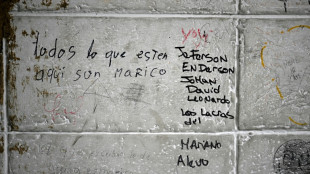 todos lo que esten
aqui son marico
yoly
Jeferson
Enderson
Johan
David
Leonardo
Los Lacras
del
Mariano